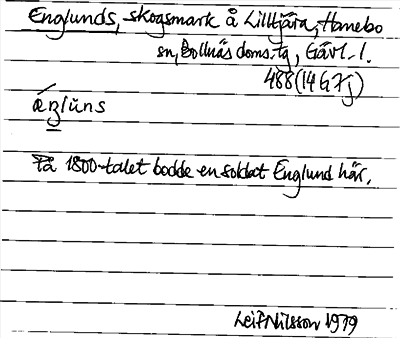 Englunds, skogsmark å Lilltjära, Hanebo
sn, Bollnäs doms.tg, Gävl. l.
488 (14 G 7 j)
æŋlũns
På 1800-talet bodde en soldat Englund här.
Leif Nilsson 1979